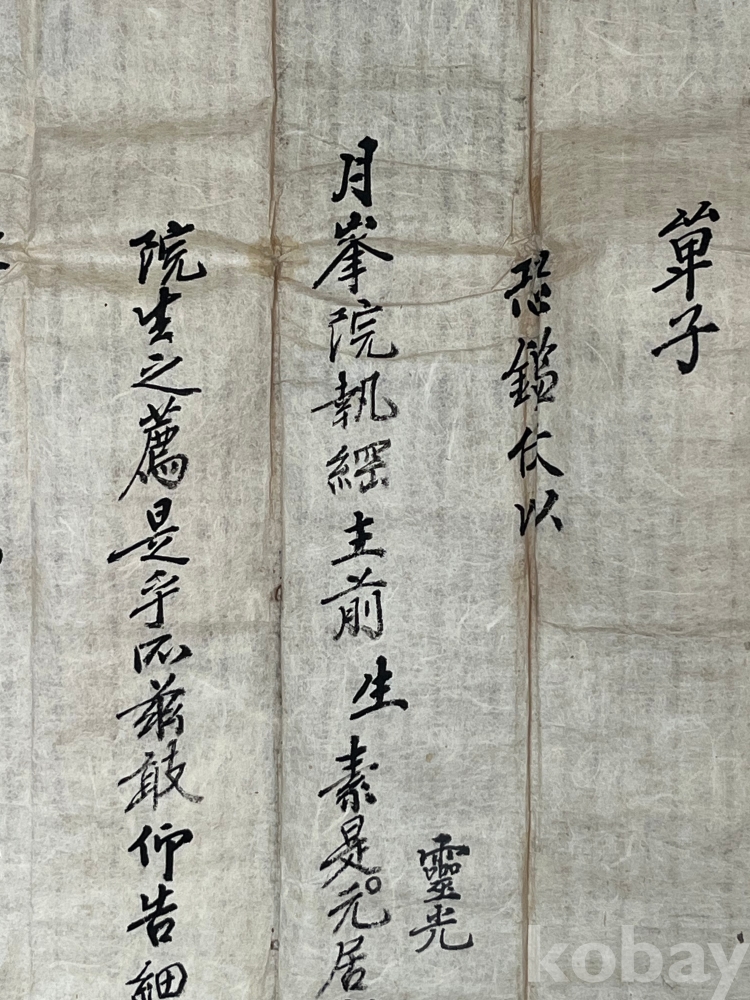 單子
恐鑑伏以
靈光
月峯院執綱主前生素是元居
院生之薦是乎所玆敢仰告細
kobay